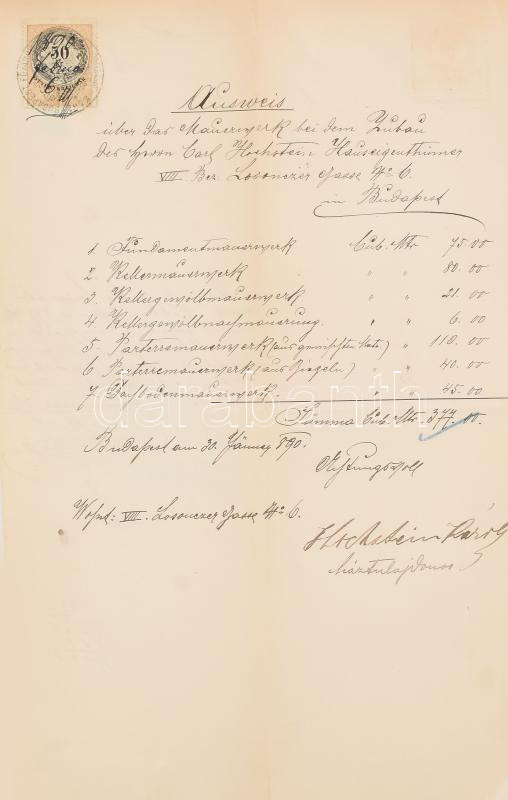 50
Ausweis
über das Mauerwerk bei dem Zubau
des Herrn Carl Hochstein Hauseigenthümer
VIII Bez. Losonczer Gasse No 6.
in Budapest
1. Fundamentmauerwerk Cub. Mtr 75.00
2. Kellermauerwerk " " 80.00
3. Kellergewölbmauerwerk " " 21.00
4. Kellergewölbnachmauerung. " " 6.00
5. Parterremauerwerk (aus gemischten Mat.) " 110.00
6. Parterremauerwerk (aus Ziegeln) " " 40.00
7. Dachbodenmauerwerk. " " 45.00
Summa Cub. Mtr. 377.00.
Budapest am 30. Jänner 890.
Achtungsvoll
Wohnt: VIII. Losonczer Gasse No 6.
Hochstein Károly
háztulajdonos
darabanth